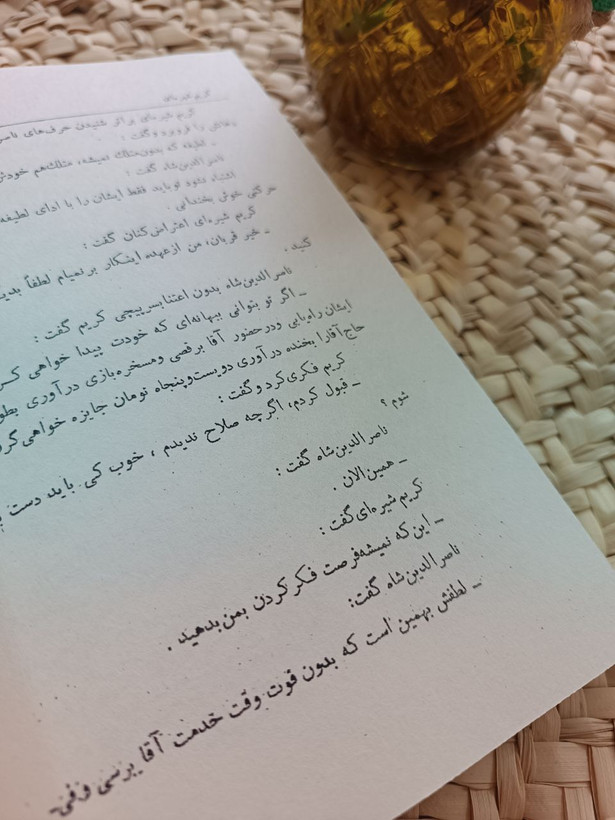 کریم شیره‌ای
کریم شیره‌ای بر اثر شنیدن حرف‌های ناصر
و گفت :
ناصرالدین‌شاه گفت :
فقط ایشان را با ادای لطیفه
حرکتی خوش بخندانی .
کریم شیره‌ای اعتراض‌کنان گفت :
ـ خیر قربان، من ازعهده اینکار برنمیام لطفاً
گید .
ناصرالدین‌شاه بدون اعتنا بسرپیچی کریم گفت :
ـ اگر تو بتوانی ببهانه‌ای که خودت پیدا خواهی
ایشان راه‌یابی ودرحضور آقا برقصی ومسخره‌بازی درآوری
حاج‌آقارا بخنده درآوری دویست‌وپنجاه تومان جایزه خواهی
کریم فکری‌کرد و گفت :
ـ قبول کردم، اگرچه صلاح ندیدم ، خوب کی باید دست
شوم ؟
ناصرالدین‌شاه گفت :
ـ همین‌الان .
کریم شیره‌ای‌گفت :
ـ این که نمیشه‌فرصت فکر کردن بمن‌بدهید .
ناصرالدین‌شاه گفت:
ـ لطفش بهمین است که بدون فوت وقت خدمت آقا برسی وفی‌ـ